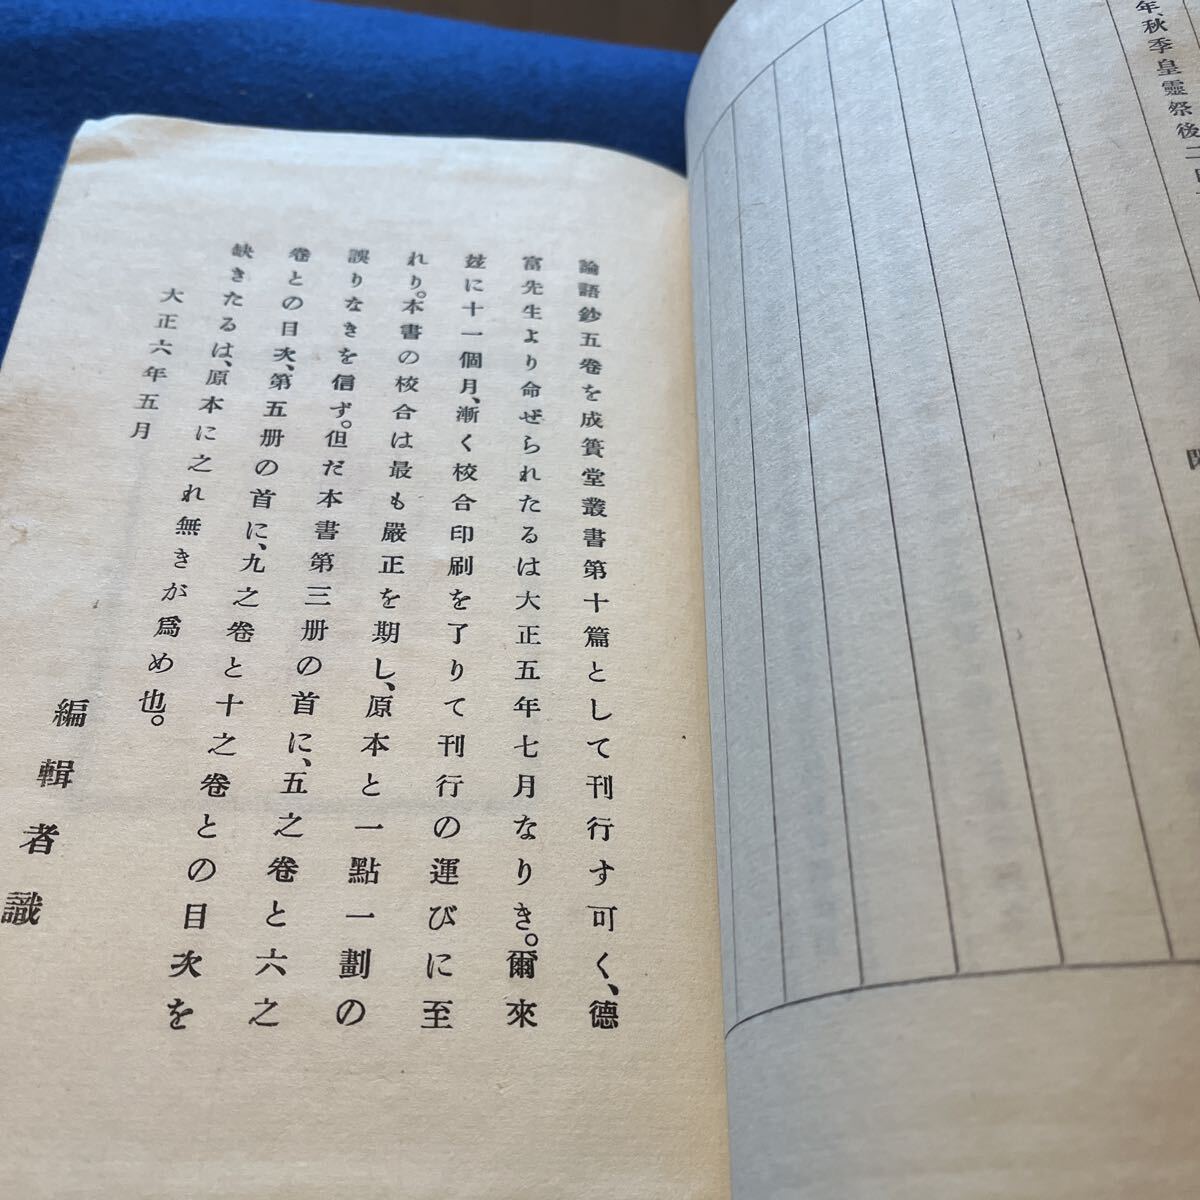 年、秋季皇靈祭後二日
論語鈔五卷を成簣堂叢書第十篇として刊行す可く、德
富先生より命ぜられたるは大正五年七月なりき。爾來
玆に十一個月、漸く校合印刷を了りて刊行の運びに至
れり。本書の校合は最も嚴正を期し、原本と一點一劃の
誤りなきを信ず。但だ本書第三册の首に、五之卷と六之
卷との目次、第五册の首に、九之卷と十之卷との目次を
缺きたるは、原本に之れ無きが爲め也。
大正六年五月
編輯者識